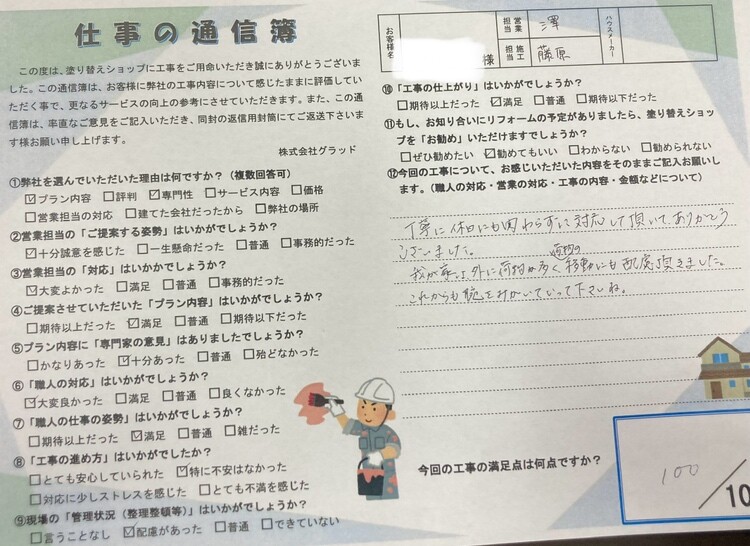 仕事の通信簿
この度は、塗り替えショップに工事をご用命いただき誠にありがとうございま
した。この通信簿は、お客様に弊社の工事内容について感じたままに評価してい
ただく事で、更なるサービスの向上の参考にさせていただきます。また、この通
信簿は、率直なご意見をご記入いただき、同封の返信用封筒にてご返送下さいま
す様お願い申し上げます。
株式会社グラッド
①弊社を選んでいただいた理由は何ですか？（複数回答可）
☑プラン内容 □評判 ☑専門性 □サービス内容 □価格
□営業担当の対応 □建てた会社だったから □弊社の場所
②営業担当の「ご提案する姿勢」はいかがでしょうか？
☑十分誠意を感じた □一生懸命だった □普通 □事務的だった
③営業担当の「対応」はいかかでしょうか？
☑大変よかった □満足 □普通 □事務的だった
④ご提案させていただいた「プラン内容」はいかがでしょうか？
□期待以上だった ☑満足 □普通 □期待以下だった
⑤プラン内容に「専門家の意見」はありましたでしょうか？
□かなりあった ☑十分あった □普通 □殆どなかった
⑥「職人の対応」はいかがでしょうか？
☑大変良かった □満足 □普通 □良くなかった
⑦「職人の仕事の姿勢」はいかがでしょうか？
□期待以上だった ☑満足 □普通 □雑だった
⑧「工事の進め方」はいかがでしたか？
□とても安心していられた ☑特に不安はなかった
□対応に少しストレスを感じた □とても不満を感じた
⑨現場の「管理状況（整理整頓等）」はいかがでしょうか？
□言うことなし ☑配慮があった □普通 □できていない
お客様名
様
営業担当
澤
施工担当
藤原
ハウスメーカー
⑩「工事の仕上がり」はいかがでしょうか？
□期待以上だった ☑満足 □普通 □期待以下だった
⑪もし、お知り合いにリフォームの予定がありましたら、塗り替えショッ
プを「お勧め」いただけますでしょうか？
□ぜひ勧めたい ☑勧めてもいい □わからない □勧められない
⑫今回の工事について、お感じいただいた内容をそのままご記入お願いし
ます。（職人の対応・営業の対応・工事の内容・金額などについて）
丁寧に休日にも関わらずに対応して頂いて、ありがとう
ございました。
我が家は外に荷物が多く 荷物の移動にも配慮頂きました。
これからも腕をみがいていって下さいね。
今回の工事の満足点は何点ですか？
100
/10